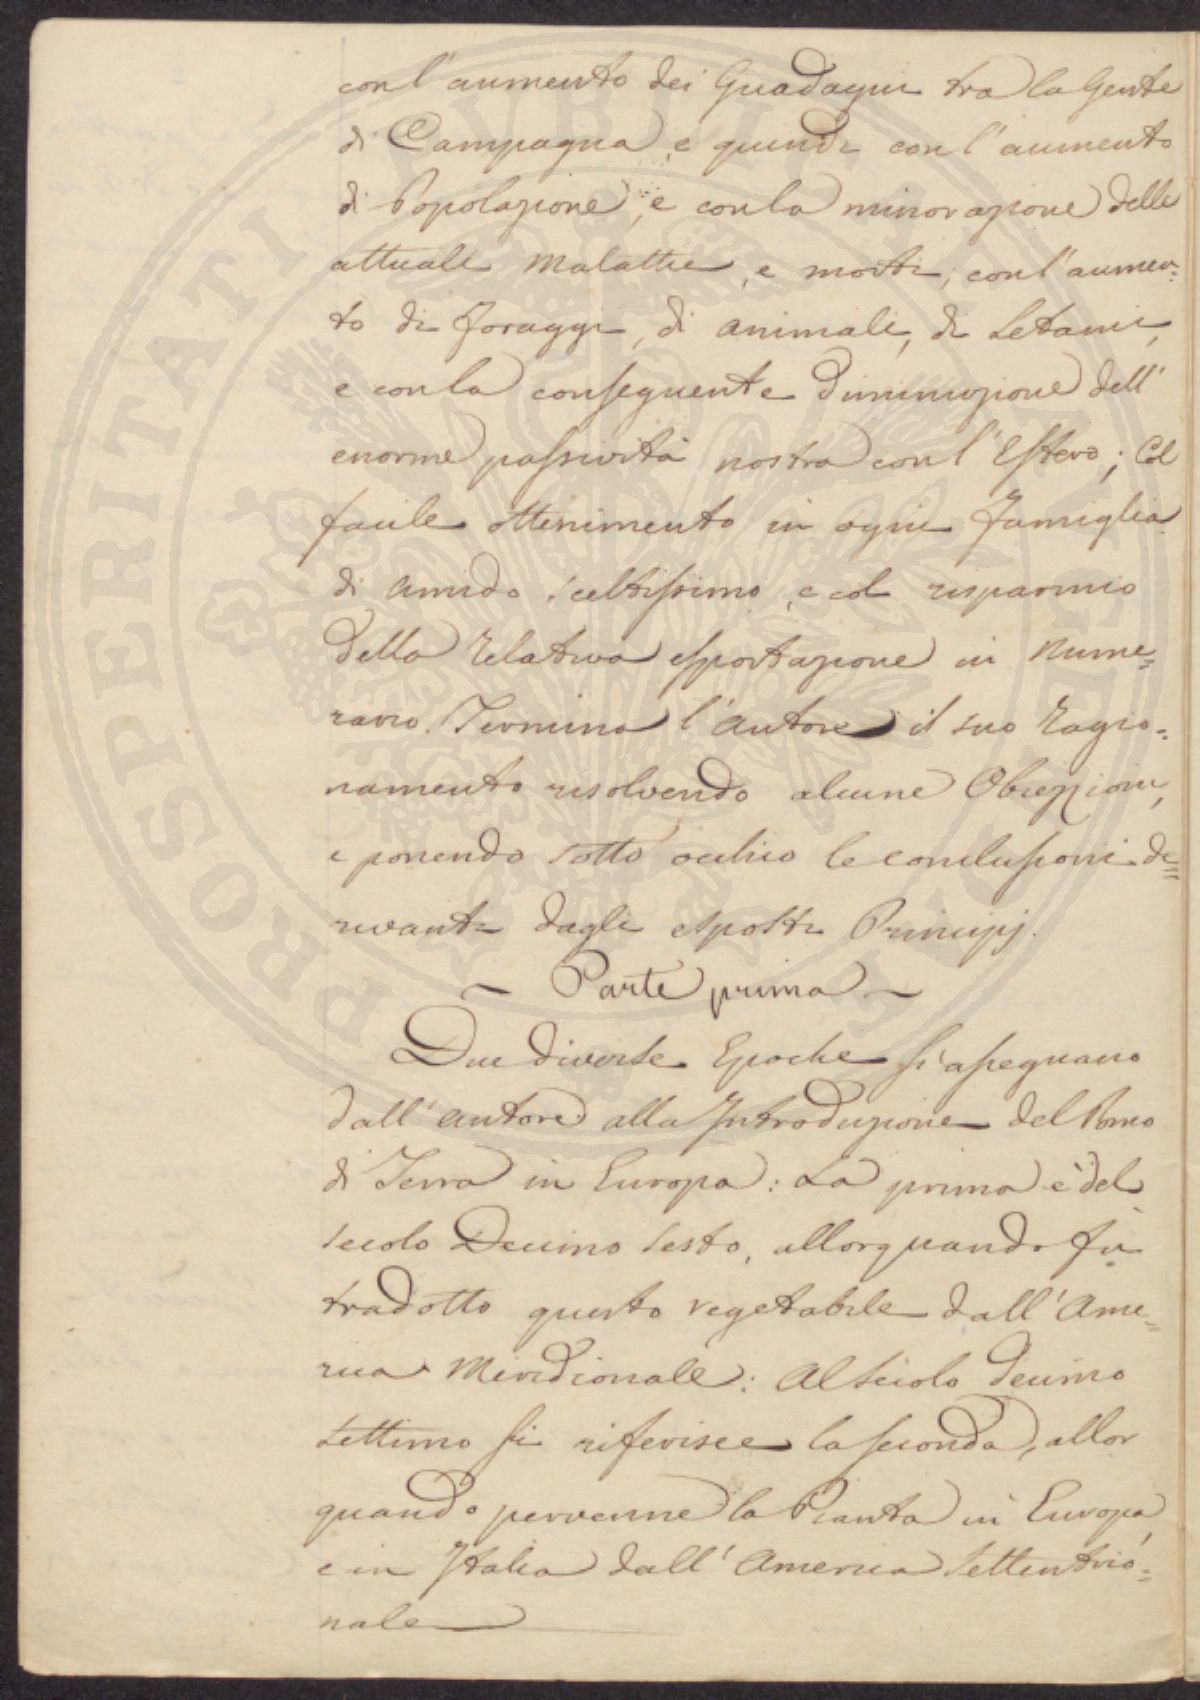 con l'aumento dei Guadagni tra la Gente
di Campagna, e quindi con l'aumento
di Popolazione, e con la minorazione delle
attuali Malattie, e morti; con l'aumen=
to di foraggi, di animali, di Letami,
e con la conseguente diminuzione dell'
enorme passività nostra con l'Estero; Col
facile ottenimento in ogni famiglia
di amido sceltissimo, e col risparmio
della relativa esportazione in nume=
rario. Termina l'autore il suo Ragio=
namento risolvendo alcune Obiezzioni,
e ponendo sotto occhio le conclusioni de=
rivanti dagli esposti Principj.
~ Parte prima ~
Due diverse Epoche si assegnano
dall'autore alla Introduzione del Pomo
di Terra in Europa: La prima è del
secolo Decimo sesto, allorquando fù
tradotto questo vegetabile dall'Ame=
rica Meridionale: Al secolo decimo
settimo si riferisce la seconda, allor
quando pervenne la Pianta in Europa,
e in Italia dall'America settentrio=
nale
PROSPERITATI PUBLICAE AUGENDAE